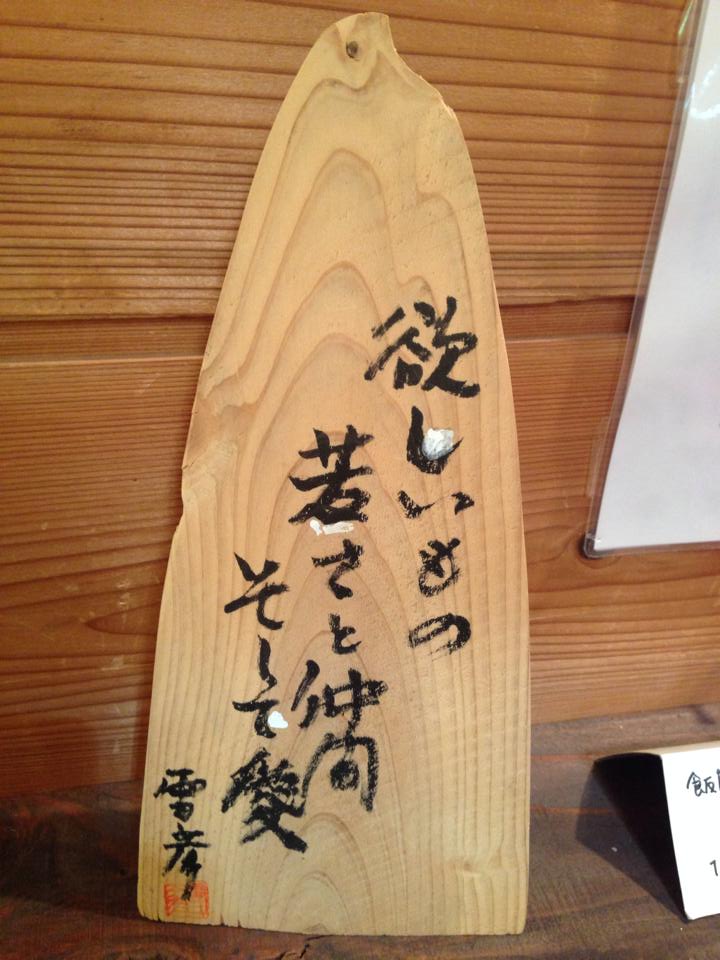 欲しいもの
若さと仲間
そして愛
雪彦
飯
1